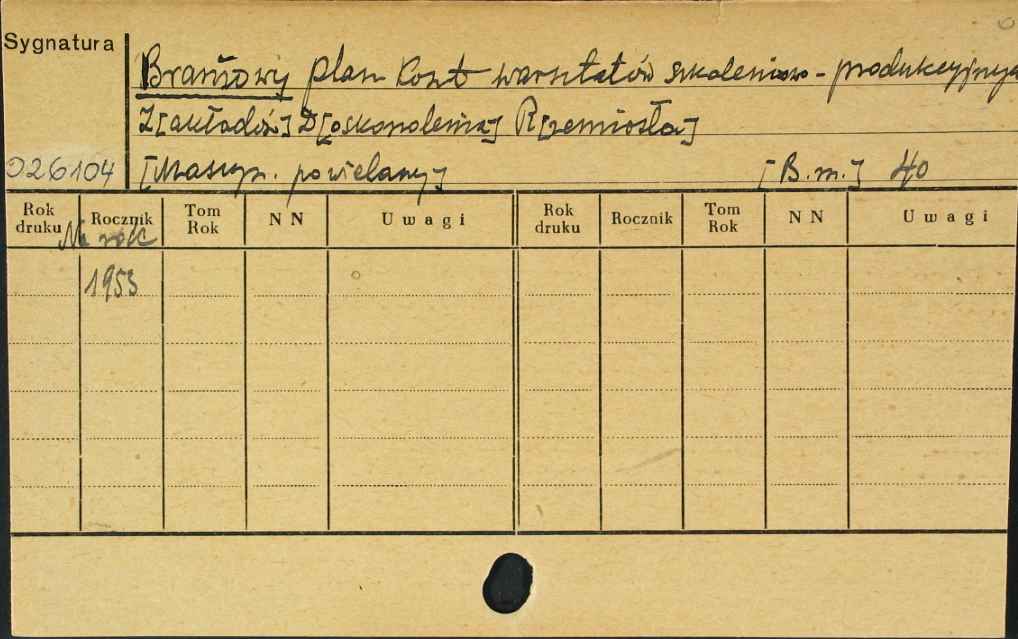 Sygnatura
Branżowy plan kont warsztatów szkoleniowo-produkcyjnych
Z[akładów] D[oskonalenia] R[zemiosła]
026104 [Maszyn. powielany] [B.m.] 40
Rok druku Rocznik Tom Rok NN Uwagi Rok druku Rocznik Tom Rok NN Uwagi
Na rok
1953